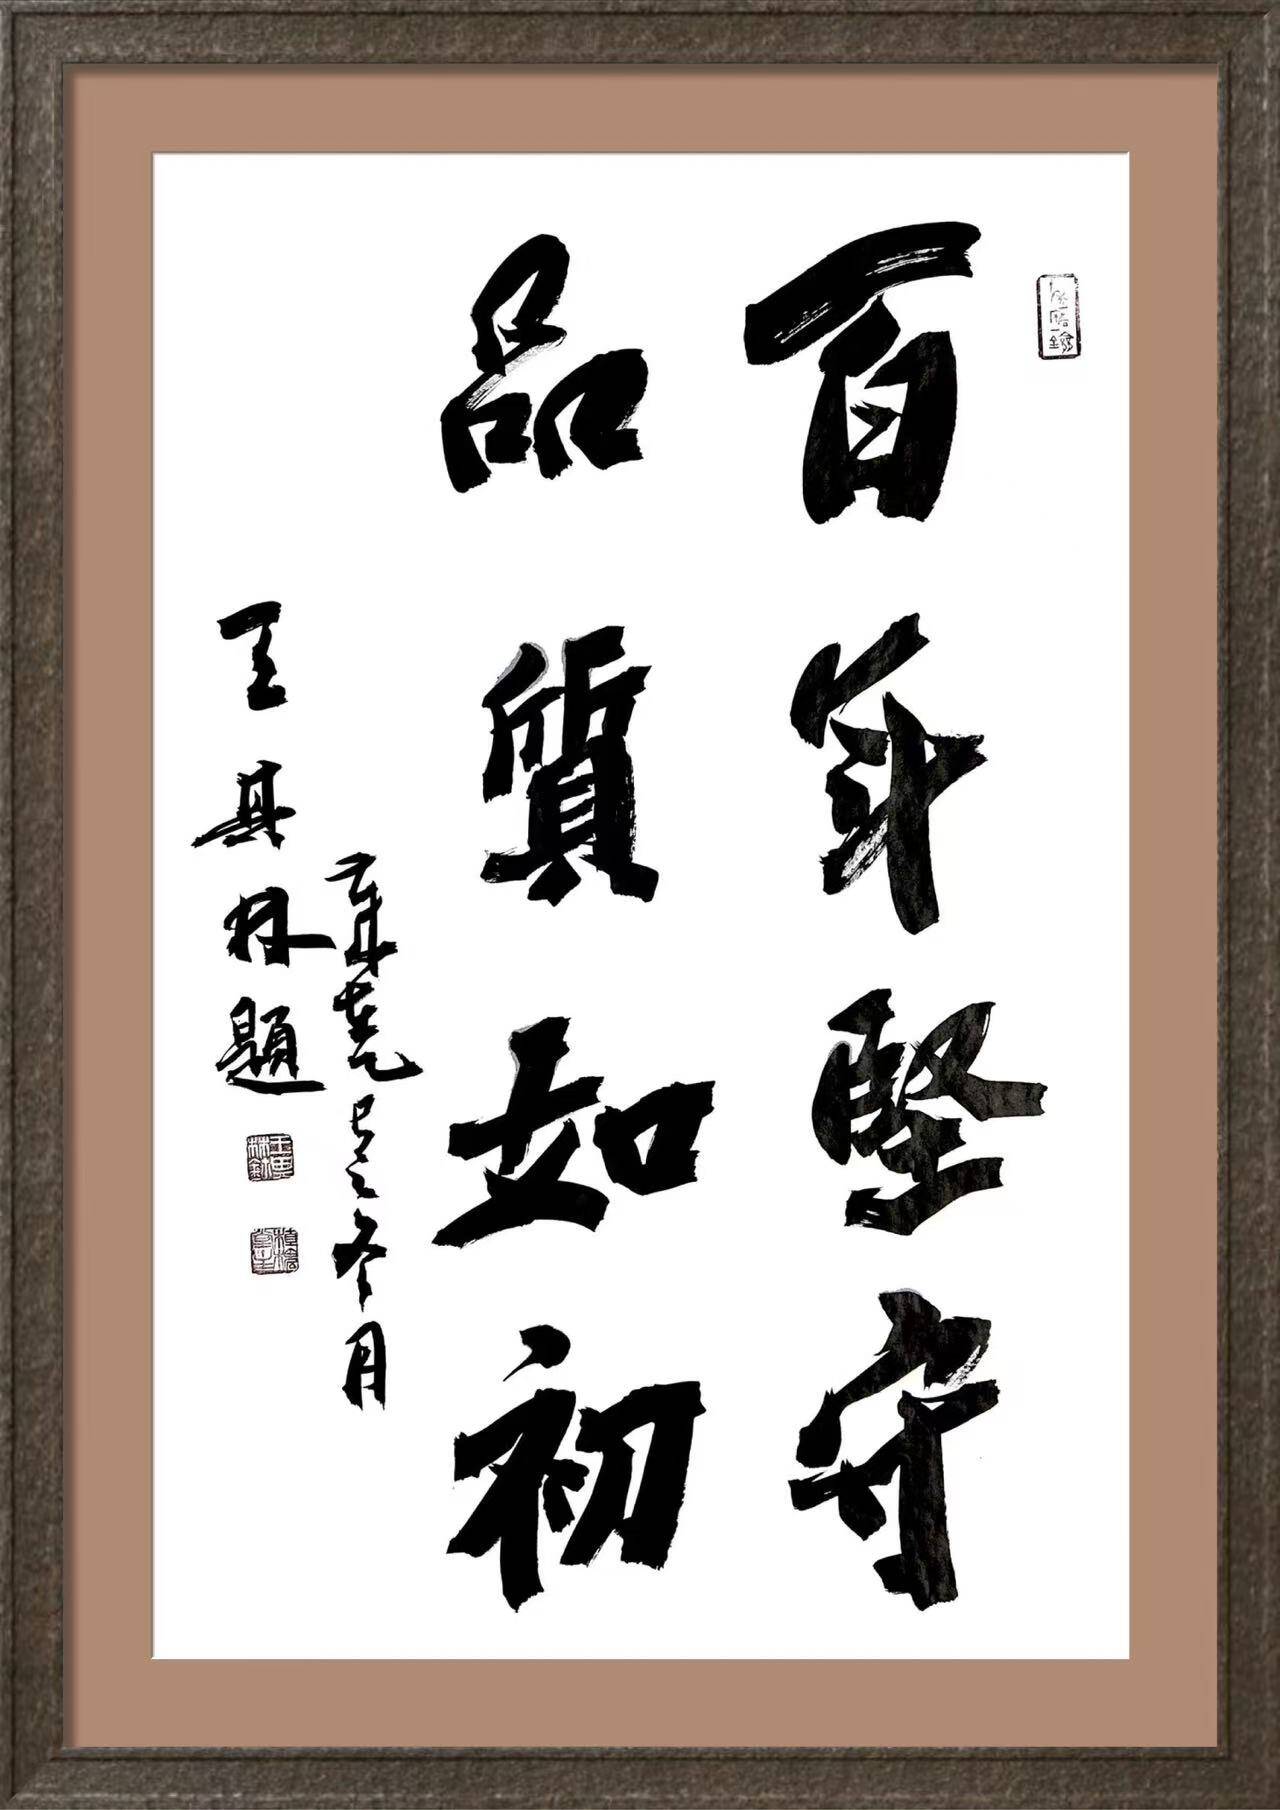 百年堅守
品質如初
冬月
王其林題